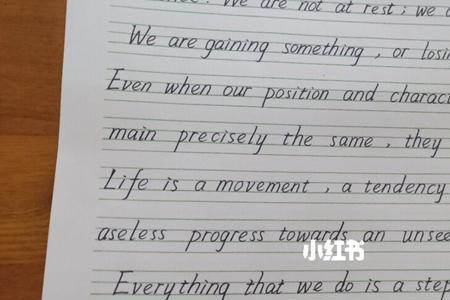 We are not at rest ; we
We are gaining something , or losi
Even when our position and charact
main precisely the same , they
Life is a movement , a tendency
aseless progress towards an unsee
Everything that we do is a step
小红书